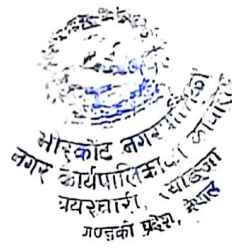 भीरकोट नगरपालिका
नगर कार्यपालिकाको कार्यालय
बयरघारी, स्याङ्जा
गण्डकी प्रदेश, नेपाल